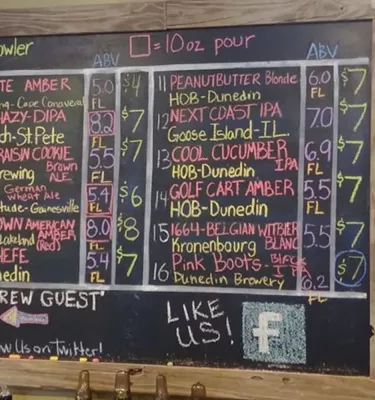 owler
ABV
□=10oz pour
ABV
TE AMBER 5.0 $4
ng-Cape Canaveral FL
HAZY-DIPA 8.2 $7
ch-St Pete FL
RAISIN COOKIE 5.5 $7
rewing Brown ALE FL
German wheat Ale 5.4 $6
tude-Gainesville FL
OWN AMERICAN 8.0 $8
Lakeland AMBER (Red) FL
HEFE 5.4 $7
nedin FL
11 PEANUTBUTTER Blonde 6.0 $7
HOB-Dunedin FL
12 NEXT COAST IPA 7.0 $7
Goose Island-IL.
13 COOL CUCUMBER IPA 6.9 $7
HOB-Dunedin FL
14 GOLF CART AMBER 5.5 $7
HOB-Dunedin FL
15 1664-BELGIAN WITBIER 5.5 $7
Kronenbourg BLANC
16 Pink Boots-Black IPA 6.2 $7
Dunedin Brewery FL
REW GUEST'
LIKE
US!
f
w Us on Twitter!